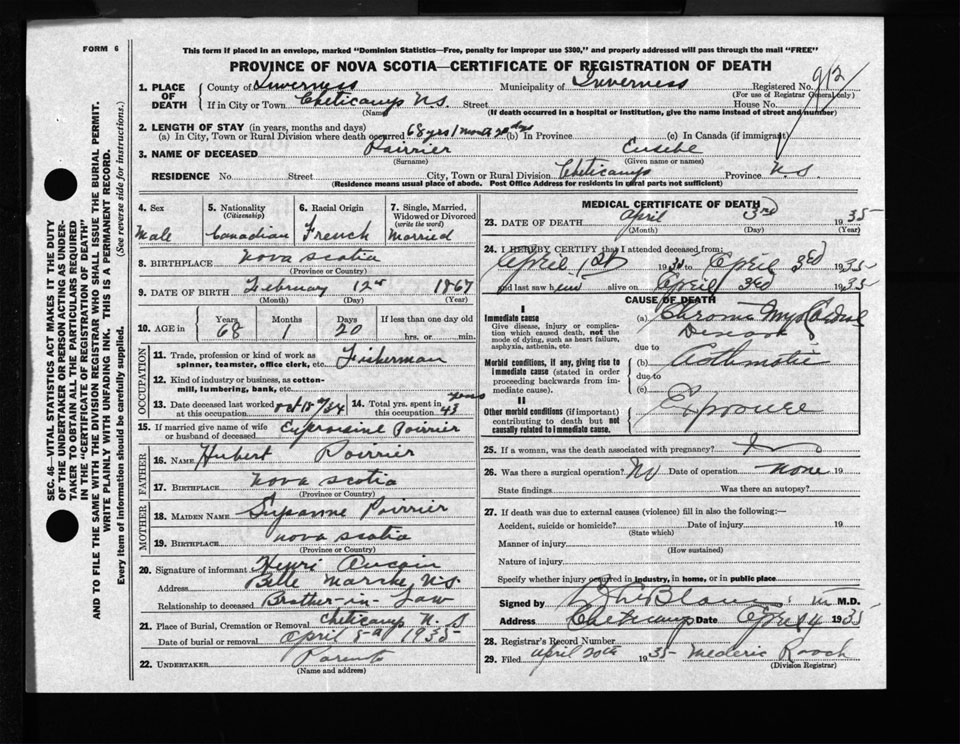 FORM 6
This form if placed in an envelope, marked "Dominion Statistics—Free, penalty for improper use $300," and properly addressed will pass through the mail "FREE"
PROVINCE OF NOVA SCOTIA—CERTIFICATE OF REGISTRATION OF DEATH
1. PLACE OF DEATH
County of Inverness Municipality of Inverness Registered No. 912
(For use of Registrar General only)
If in City or Town Cheticamp N.S. Street House No.
(Name) (If death occurred in a hospital or institution, give the name instead of street and number)
2. LENGTH OF STAY (in years, months and days)
(a) In City, Town or Rural Division where death occurred 68 yrs 1 month 20 dys (b) In Province (c) In Canada (if immigrant)
3. NAME OF DECEASED Poirrier Eusebe
(Surname) (Given name or names)
RESIDENCE No. Street City, Town or Rural Division Cheticamp Province N S.
(Residence means usual place of abode. Post Office Address for residents in rural parts not sufficient)
4. Sex Male
5. Nationality (Citizenship) Canadian
6. Racial Origin French
7. Single, Married, Widowed or Divorced (write the word) Married
8. BIRTHPLACE Nova Scotia
(Province or Country)
9. DATE OF BIRTH February 12 1867
(Month) (Day) (Year)
10. AGE in Years 68 Months 1 Days 20 If less than one day old hrs. or min.
OCCUPATION
11. Trade, profession or kind of work as spinner, teamster, office clerk, etc. Fisherman
12. Kind of industry or business, as cotton-mill, lumbering, bank, etc.
13. Date deceased last worked at this occupation Oct 18 /34
14. Total yrs. spent in this occupation 43 years
15. If married give name of wife or husband of deceased Poirrier
FATHER
16. NAME Hubert Poirrier
17. BIRTHPLACE Nova Scotia
(Province or Country)
MOTHER
18. MAIDEN NAME Suzanne Poirrier
19. BIRTHPLACE Nova Scotia
(Province or Country)
20. Signature of informant Henri Aucoin
Address Belle Marche N.S.
Relationship to deceased Brother-in-Law
21. Place of Burial, Cremation or Removal Cheticamp N. S
Date of burial or removal April 5 1935
22. UNDERTAKER Parents
(Name and address)
MEDICAL CERTIFICATE OF DEATH
23. DATE OF DEATH April 3rd 1935
(Month) (Day) (Year)
24. I HEREBY CERTIFY that I attended deceased from:
April 1st 1935 to April 3rd 1935
and last saw him alive on April 3rd 1935
CAUSE OF DEATH
I
Immediate cause
Give disease, injury or complication which caused death, not the mode of dying, such as heart failure, asphyxia, asthenia, etc.
(a) Chronic Myocardial Disease
due to
Morbid conditions, if any, giving rise to immediate cause (stated in order proceeding backwards from immediate cause).
(b) Asthmatic
due to
(c)
II
Other morbid conditions (if important) contributing to death but not causally related to immediate cause.
Exposure
25. If a woman, was the death associated with pregnancy?
26. Was there a surgical operation? No Date of operation none 19
State findings Was there an autopsy?
27. If death was due to external causes (violence) fill in also the following:—
Accident, suicide or homicide? Date of injury 19
(State which)
Manner of injury
(How sustained)
Nature of injury
Specify whether injury occurred in industry, in home, or in public place
Signed by LeBlanc M.D.
Address Cheticamp Date April 4 1935
28. Registrar's Record Number
29. Filed April 20th 1935 Mederic Roach
(Division Registrar)
SEC. 46—VITAL STATISTICS ACT MAKES IT THE DUTY
OF THE UNDERTAKER OR PERSON ACTING AS UNDER-
TAKER TO OBTAIN ALL THE PARTICULARS REQUIRED
IN THE "CERTIFICATE OF REGISTRATION OF DEATH"
AND TO FILE THE SAME WITH THE DIVISION REGISTRAR WHO SHALL ISSUE THE BURIAL PERMIT.
WRITE PLAINLY WITH UNFADING INK. THIS IS A PERMANENT RECORD.
Every item of information should be carefully supplied. (See reverse side for instructions.)